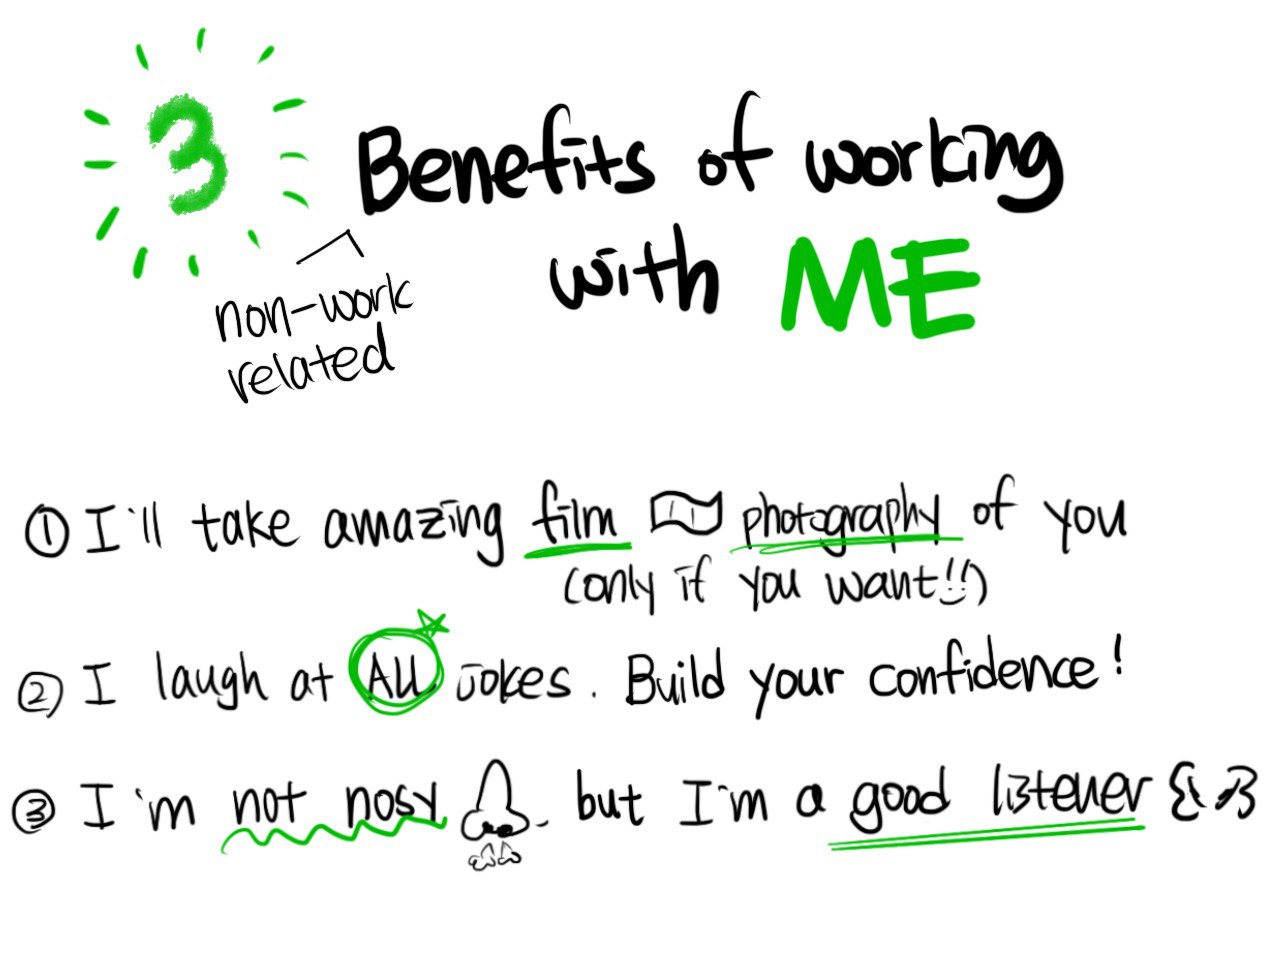 3 Benefits of working
with ME
non-work
related
① I'll take amazing film photography of you
(only if you want!!)
② I laugh at ALL jokes. Build your confidence!
③ I'm not nosy, but I'm a good listener